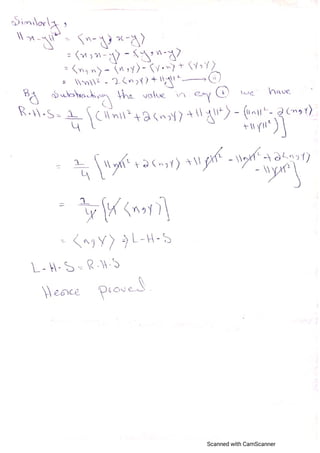 Similarly,
||x-y||² = <x-y, x-y>
= <x, x-y> - <y, x-y>
= <x, x> - <x, y> - <y, x> + <y, y>
= ||x||² - 2<x, y> + ||y||² — (ii)
By substracting the value in eq (i) we have
R.H.S = 1/4 [(||x||² + 2<x, y> + ||y||²) - (||x||² - 2<x, y> + ||y||²)]
= 1/4 [||x||² + 2<x, y> + ||y||² - ||x||² + 2<x, y> - ||y||²]
= 1/4 [4<x, y>]
= <x, y> ⇒ L-H-S
L-H-S = R.H.S
Hence proved.
Scanned with CamScanner